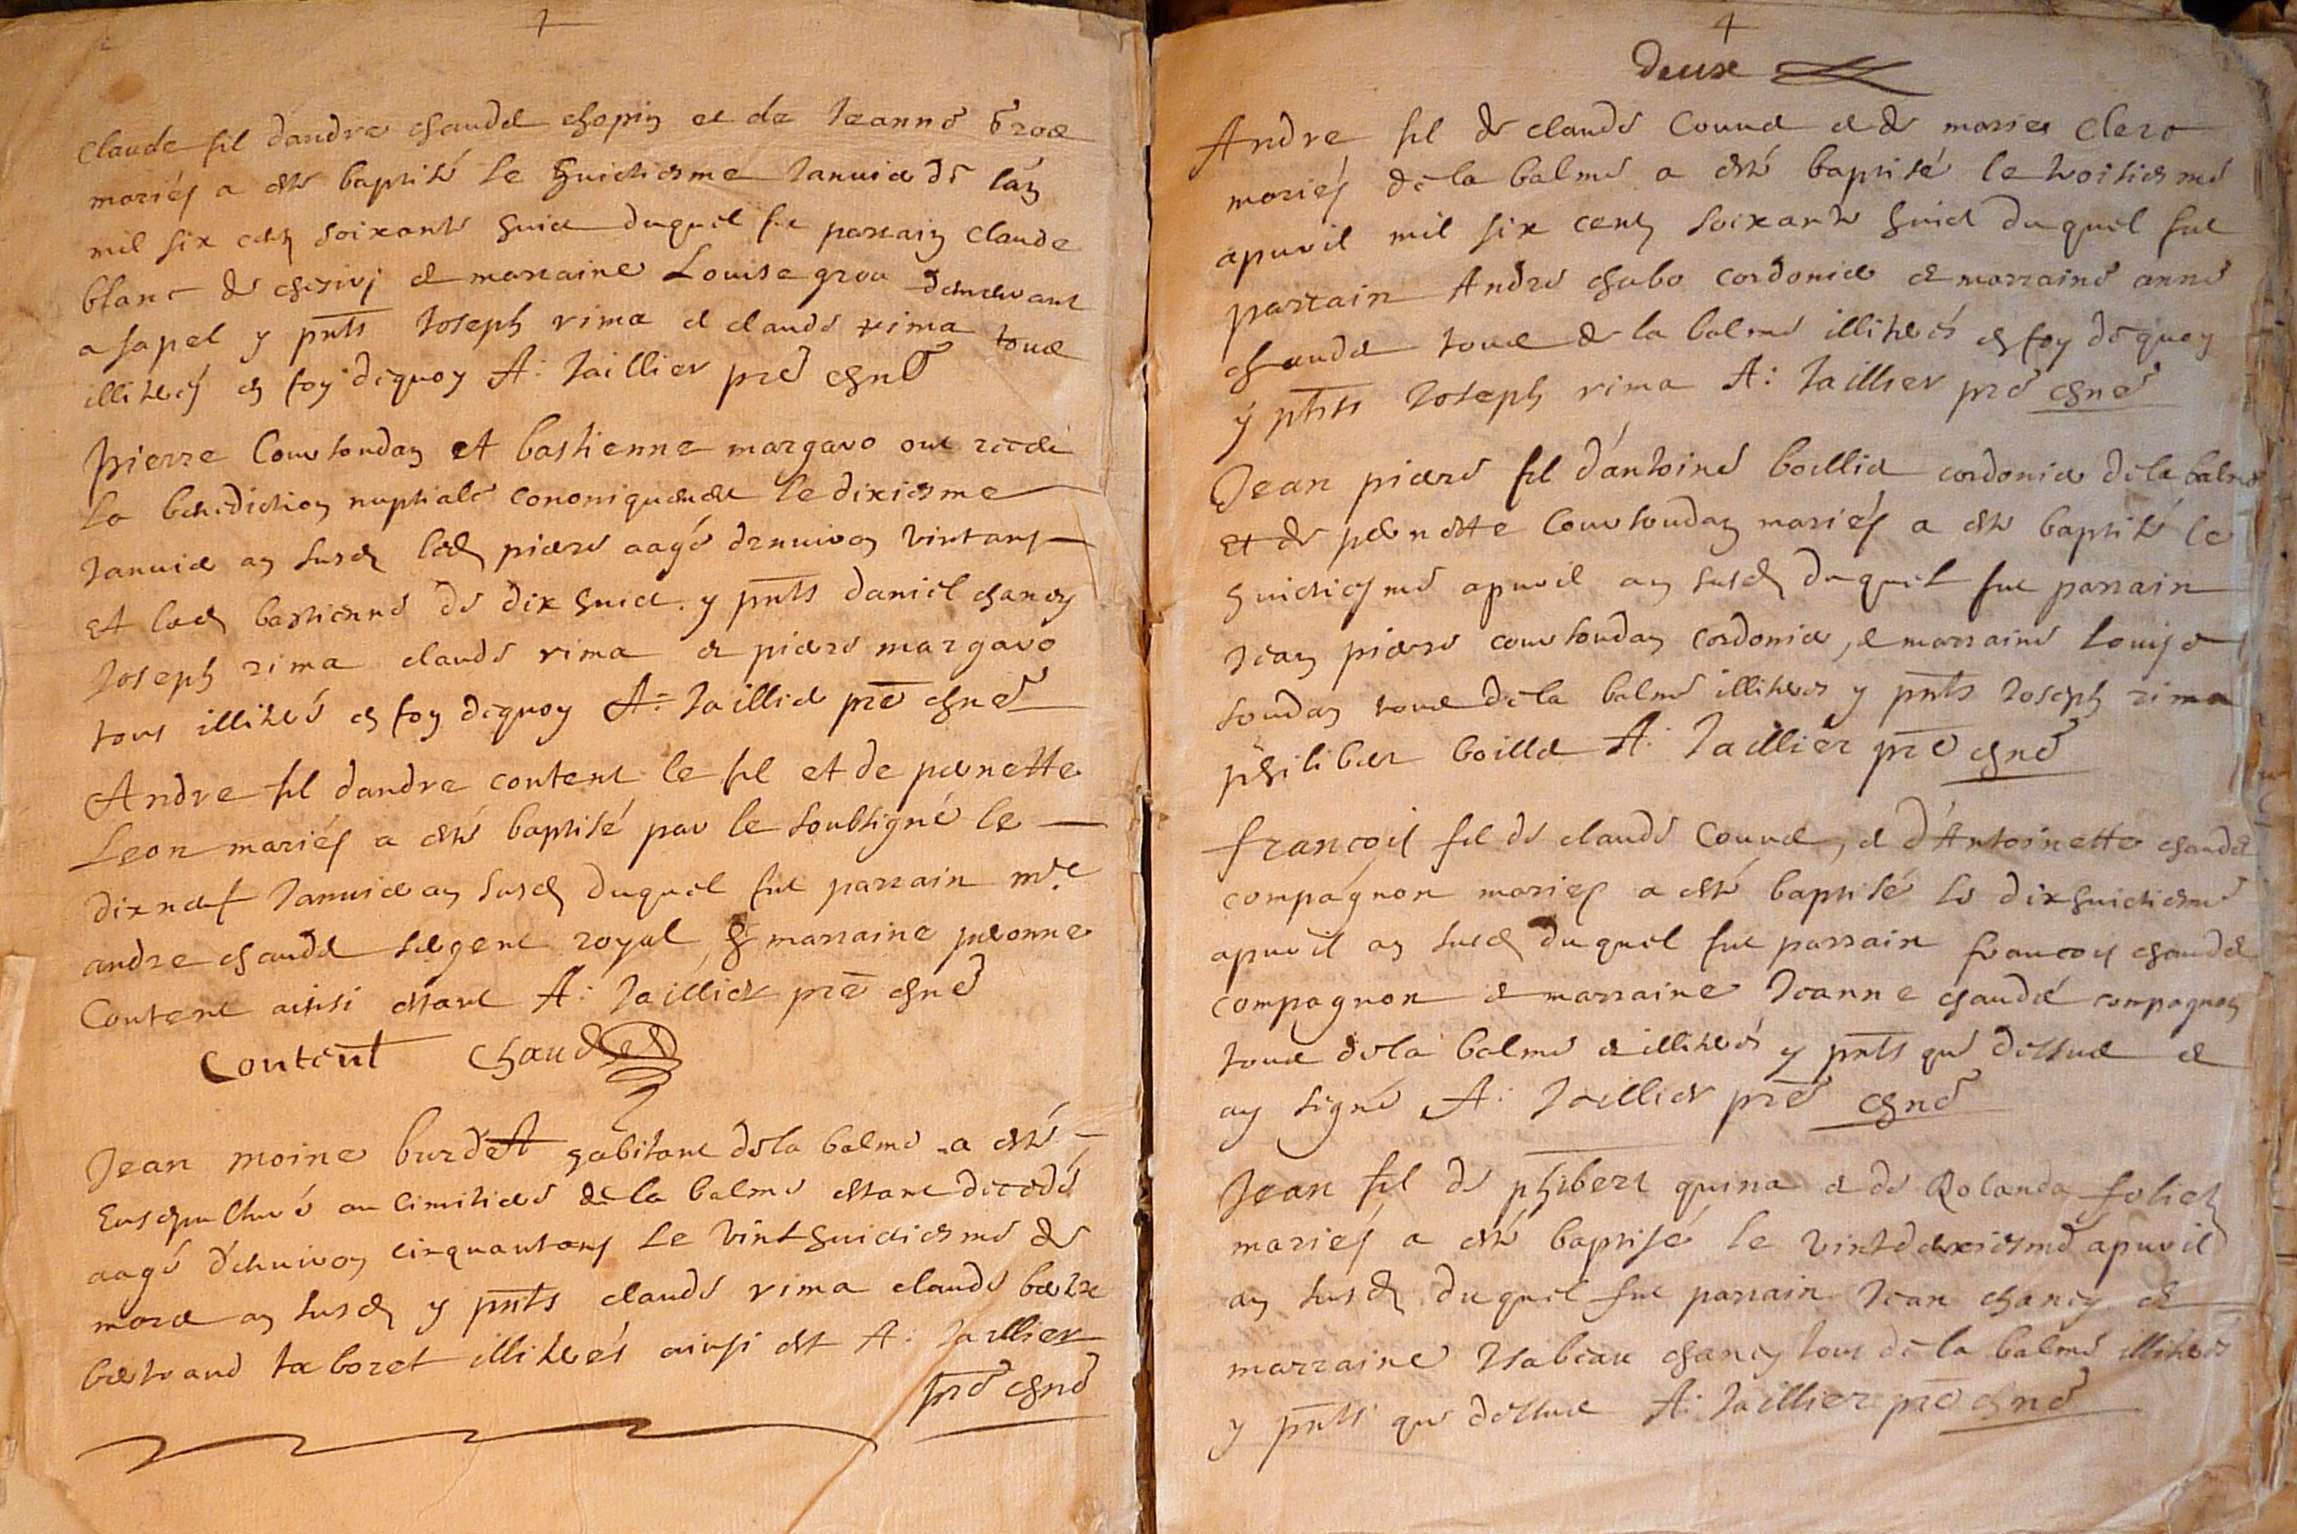 Claude fil dandre chaudet chopin et de Jeanne
mariés a esté baptisé le huictiesme Janvier de l'an
mil six cens soixante huict duquel fut parrain Claude
blanc de et marraine Louise grou demeurant
a y pnts Joseph rima et claude rima tous
illitterés en foy dequoy A: Jaillier pre
Pierre Courtoudan et bastienne margaro ont
la benediction nuptiale le dixiesme
Janvier an susd led piere aagé denviron vint ans
et lad bastienne de dix huict y pnts daniel chancy
Joseph rima claude rima et piere margaro
tous illitteré en foy dequoy A: Jaillier pre
Andre fil dandre content le fil et de pernette
Leon mariés a esté baptisé par le soubsigné le
dixneuf Janvier an susd duquel fut parrain mre
andre chaudet sergent royal, & marraine peronne
Content ainsi estant A: Jaillier pre
Content Chaudet
Jean moine burdet habitant de la balme a esté
ensepulturé au cimitiere de la balme estant decedé
aagé d'environ cinquante ans le vinthuictiesme de
mars an susd y pnts claude rima claude
bertrand taboret illitterés ainsi est A: Jaillier
pre
deux
Andre fil de claude Couvet et de marie clerc
mariés de la balme a esté baptisé le troisiesme
apuril mil six cens soixante huict duquel fut
parrain Andre chabo cordonier et marraine anne
chaudet tous de la balme illitterés en foy dequoy
y pnts Joseph rima A: Jaillier pre
Jean piere fil d'antoine boillier cordonier de la balme
et de pernette Courtoudan mariés a esté baptisé le
huictiesme apuril an susd duquel fut parrain
Jean piere courtoudan cordonier, et marraine Louise
toudan tous de la balme illitterés y pnts Joseph rima
philiber A: Jaillier pre
francois fil de claude Couvet, et d'Antoinette chaudet
compagnon mariés a esté baptisé le dixhuictiesme
apuril an susd duquel fut parrain francois chaudet
compagnon et marraine Jeanne chaudet compagnon
tous de la balme et illitterés y pnts que dessus et
ay signé A: Jaillier pre
Jean fil de phibert quina et de Rolanda foliet
mariés a esté baptisé le vintdeuxiesme apuril
an susd duquel fut parrain Jean chancy et
marraine Isabeau chancy tous de la balme illitterés
y pnts que dessus A: Jaillier pre